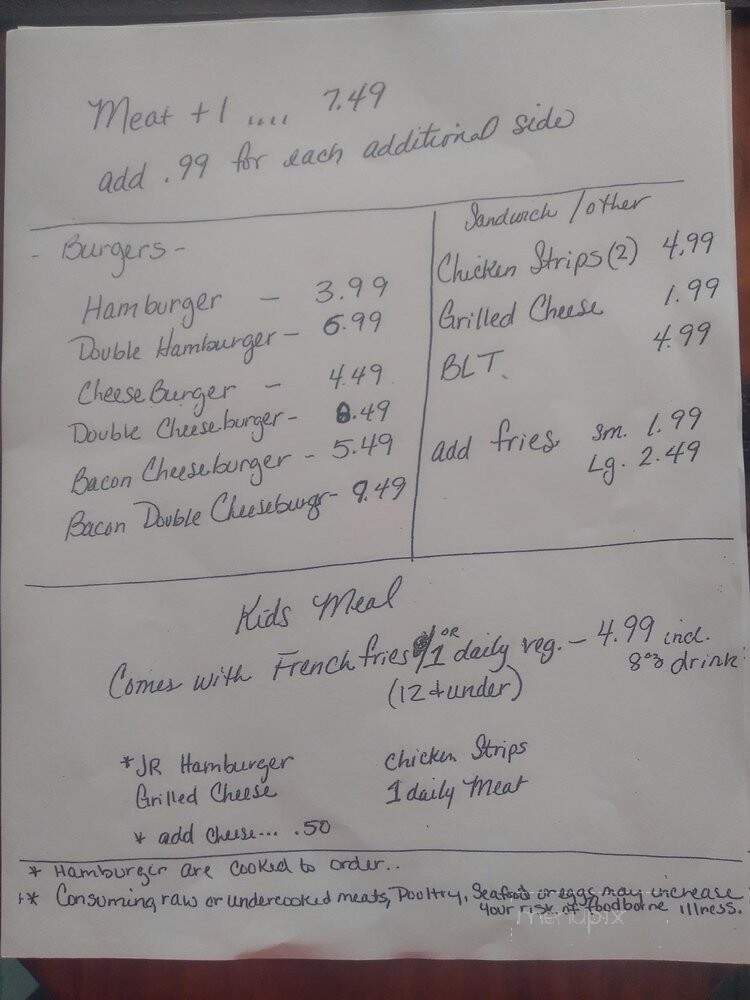 Meat + 1 .... 7.49
add .99 for each additional side
- Burgers -
Hamburger - 3.99
Double Hamburger - 6.99
Cheese Burger - 4.49
Double Cheeseburger - 8.49
Bacon Cheeseburger - 5.49
Bacon Double Cheeseburgr - 9.49
Sandwich / other
Chicken Strips (2) 4.99
Grilled Cheese 1.99
BLT. 4.99
add fries sm. 1.99
Lg. 2.49
Kids Meal
Comes with French fries or 1 daily veg. - 4.99 incl.
(12 & under) 8oz drink
*JR Hamburger Chicken Strips
Grilled Cheese 1 daily Meat
* add cheese... .50
* Hamburger are cooked to order..
** Consuming raw or undercooked meats, Poultry, Seafood or eggs may increase
your risk of foodborne illness.
menupix